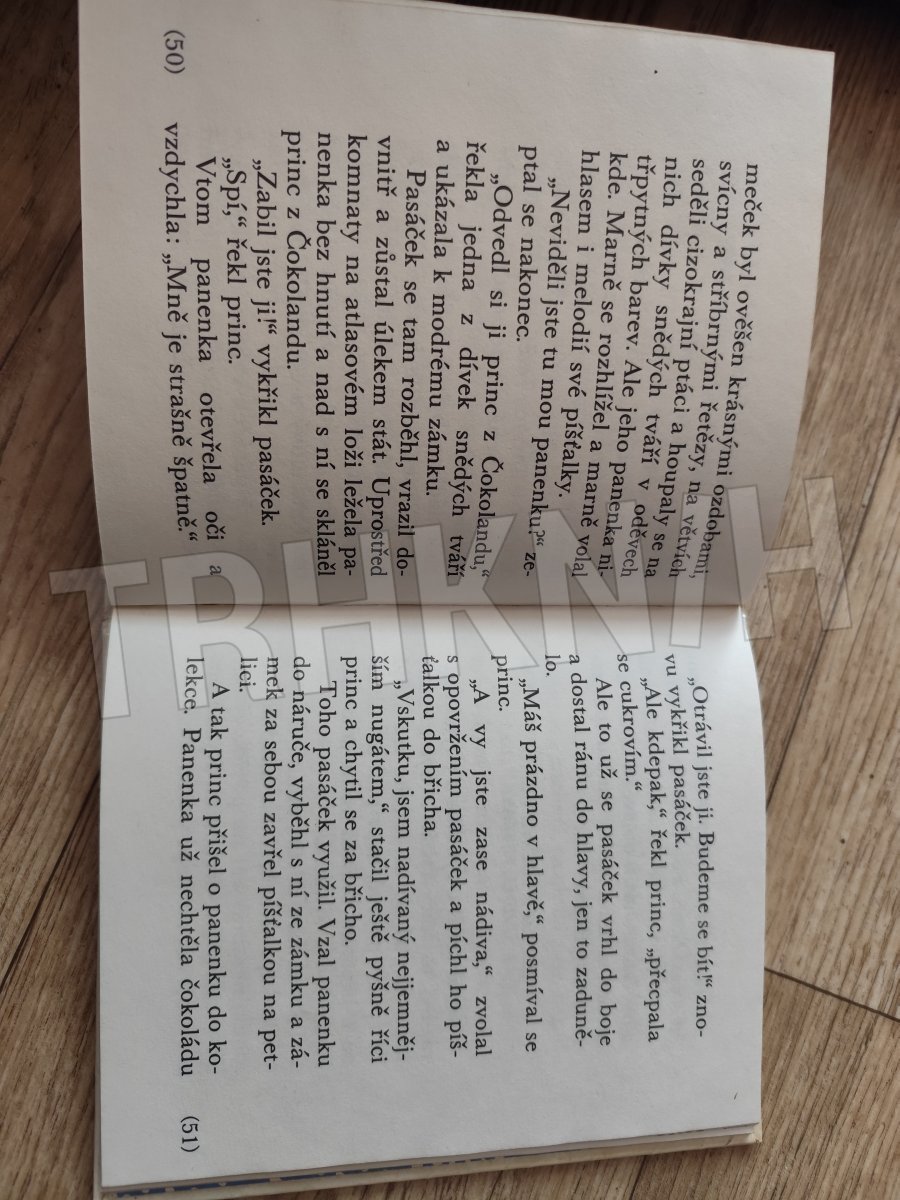 meček byl ověšen krásnými ozdobami,
svícny a stříbrnými řetězy, na větvích
seděli cizokrajní ptáci a houpaly se na
nich dívky snědých tváří v oděvech
třpytných barev. Ale jeho panenka ni-
kde. Marně se rozhlížel a marně volal
hlasem i melodií své píšťalky.
„Neviděli jste tu mou panenku?“ ze-
ptal se nakonec.
„Odvedl si ji princ z Čokolandu,“
řekla jedna z dívek snědých tváří
a ukázala k modrému zámku.
Pasáček se tam rozběhl, vrazil do-
vnitř a zůstal úlekem stát. Uprostřed
komnaty na atlasovém loži ležela pa-
nenka bez hnutí a nad s ní se skláněl
princ z Čokolandu.
„Zabil jste ji!“ vykřikl pasáček.
„Spí,“ řekl princ.
Vtom panenka otevřela oči a
vzdychla: „Mně je strašně špatně.“
(50)
„Otrávil jste ji. Budeme se bít!“ zno-
vu vykřikl pasáček.
„Ale kdepak,“ řekl princ, „přecpala
se cukrovím.“
Ale to už se pasáček vrhl do boje
a dostal ránu do hlavy, jen to zaduně-
lo.
„Máš prázdno v hlavě,“ posmíval se
princ.
„A vy jste zase nádiva,“ zvolal
s opovržením pasáček a píchl ho píš-
ťalkou do břicha.
„Vskutku, jsem nadívaný nejjemněj-
ším nugátem,“ stačil ještě pyšně říci
princ a chytil se za břicho.
Toho pasáček využil. Vzal panenku
do náruče, vyběhl s ní ze zámku a zá-
mek za sebou zavřel píšťalkou na pet-
lici.
A tak princ přišel o panenku do ko-
lekce. Panenka už nechtěla čokoládu
(51)
TRHKNIH